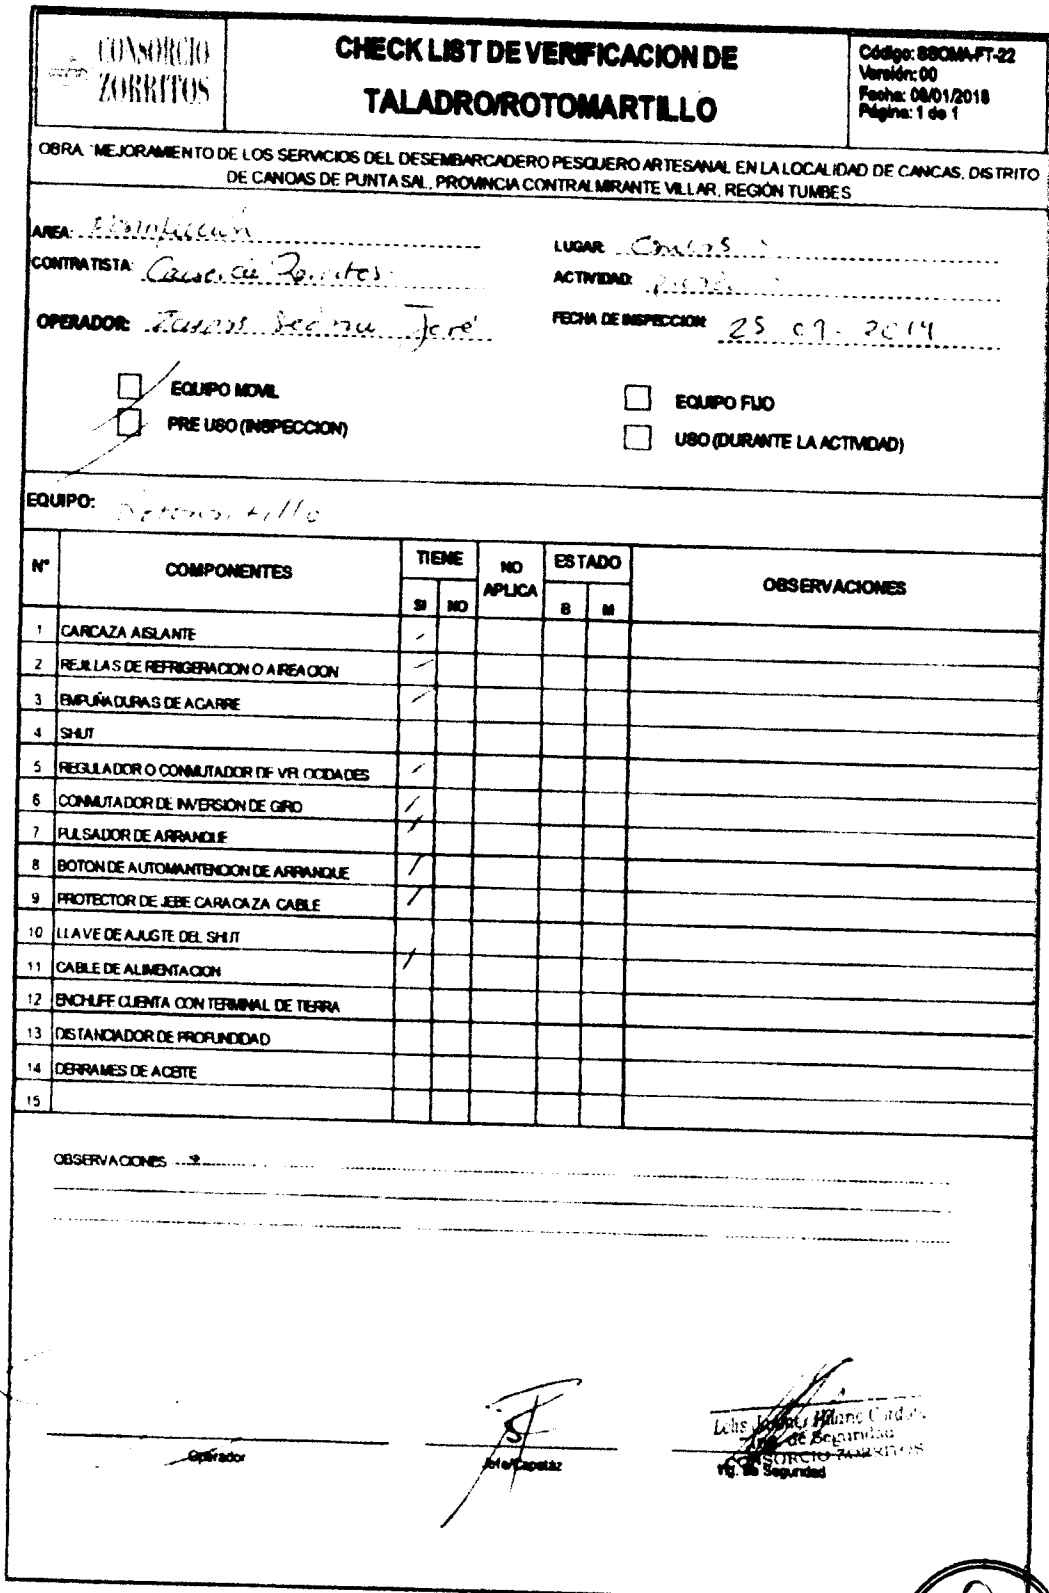 CONSORCIO
ZORRITOS
CHECK LIST DE VERIFICACION DE
TALADRO/ROTOMARTILLO
Código: SSOMA-FT-22
Versión: 00
Fecha: 08/01/2018
Página: 1 de 1
OBRA. "MEJORAMIENTO DE LOS SERVICIOS DEL DESEMBARCADERO PESQUERO ARTESANAL EN LA LOCALIDAD DE CANCAS, DISTRITO
DE CANOAS DE PUNTA SAL, PROVINCIA CONTRALMIRANTE VILLAR, REGIÓN TUMBES
AREA:
LUGAR: Cancas
CONTRATISTA: Consorcio Zorritos
ACTIVIDAD:
OPERADOR: José
FECHA DE INSPECCION: 25 09 - 2019
EQUIPO MOVIL
EQUIPO FIJO
PRE USO (INSPECCION)
USO (DURANTE LA ACTIVIDAD)
EQUIPO: Rotomartillo
N° COMPONENTES TIENE NO APLICA ESTADO OBSERVACIONES
SI NO B M
1 CARCAZA AISLANTE /
2 REJILLAS DE REFRIGERACION O AIREACION /
3 EMPUÑADURAS DE AGARRE /
4 SHUT
5 REGULADOR O CONMUTADOR DE VELOCIDADES /
6 CONMUTADOR DE INVERSION DE GIRO /
7 PULSADOR DE ARRANQUE /
8 BOTON DE AUTOMANTENCION DE ARRANQUE /
9 PROTECTOR DE JEBE CARACAZA CABLE /
10 LLAVE DE AJUGTE DEL SHUT
11 CABLE DE ALIMENTACION /
12 ENCHUFE CUENTA CON TERMINAL DE TIERRA
13 DISTANCIADOR DE PROFUNDIDAD
14 DERRAMES DE ACEITE
15
OBSERVACIONES
Operador
Jefe/Capatáz
de Seguridad
CONSORCIO ZORRITOS
Ing. de Seguridad